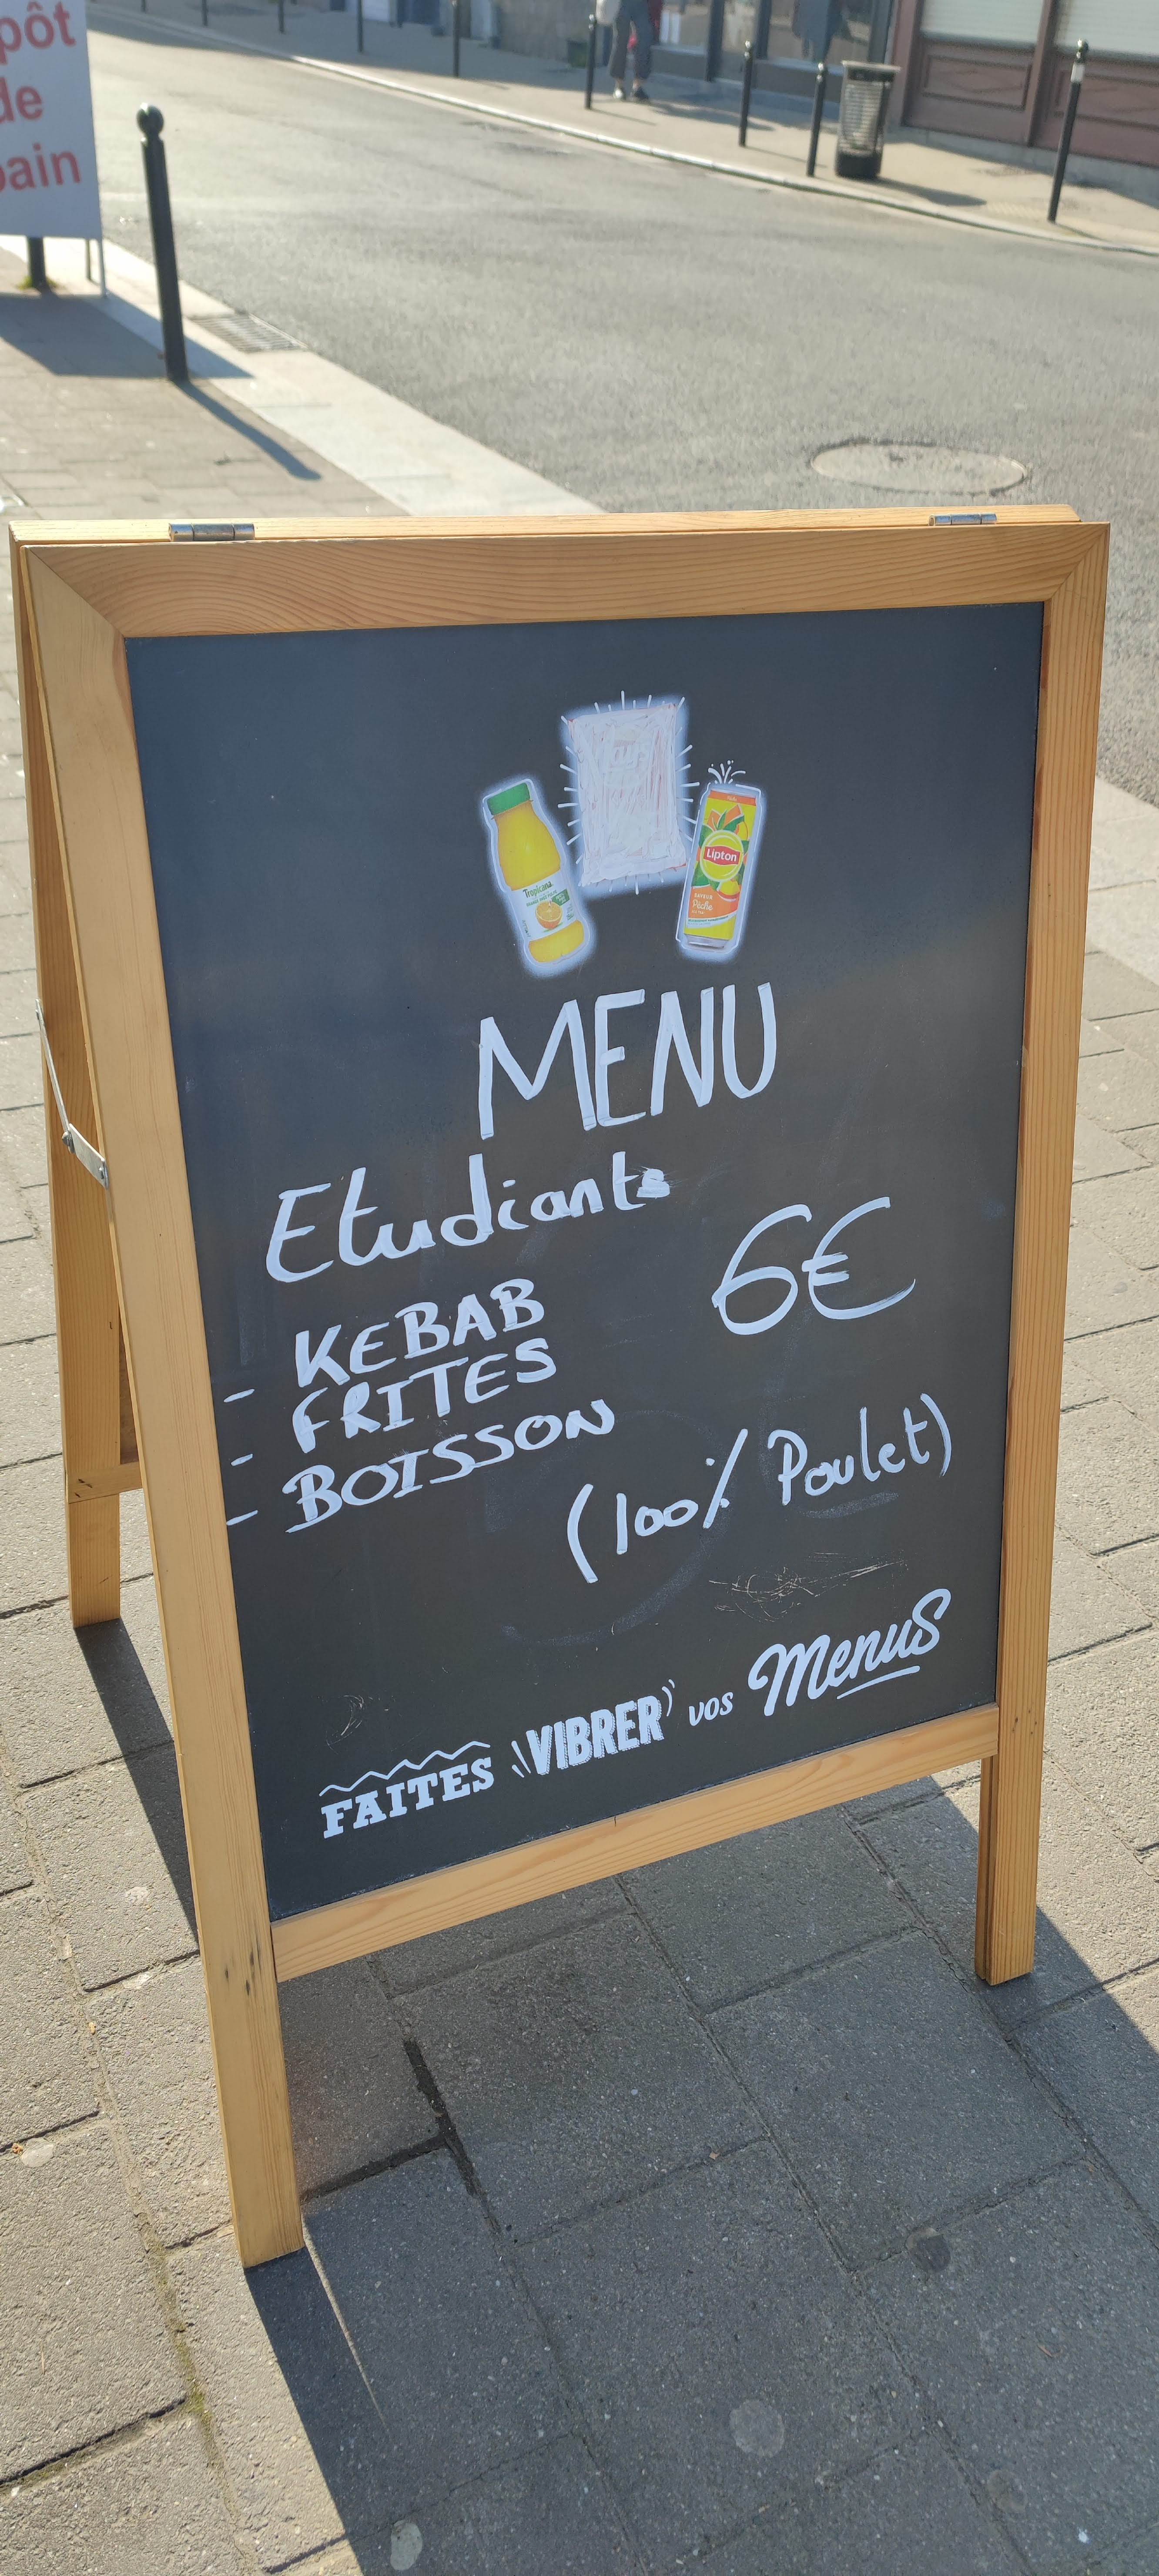 pôt
de
pain
Tropicana
Lipton
SAVEUR
Pêche
MENU
Etudiants
6€
- KEBAB
- FRITES
- BOISSON
(100% Poulet)
FAITES VIBRER vos MenuS